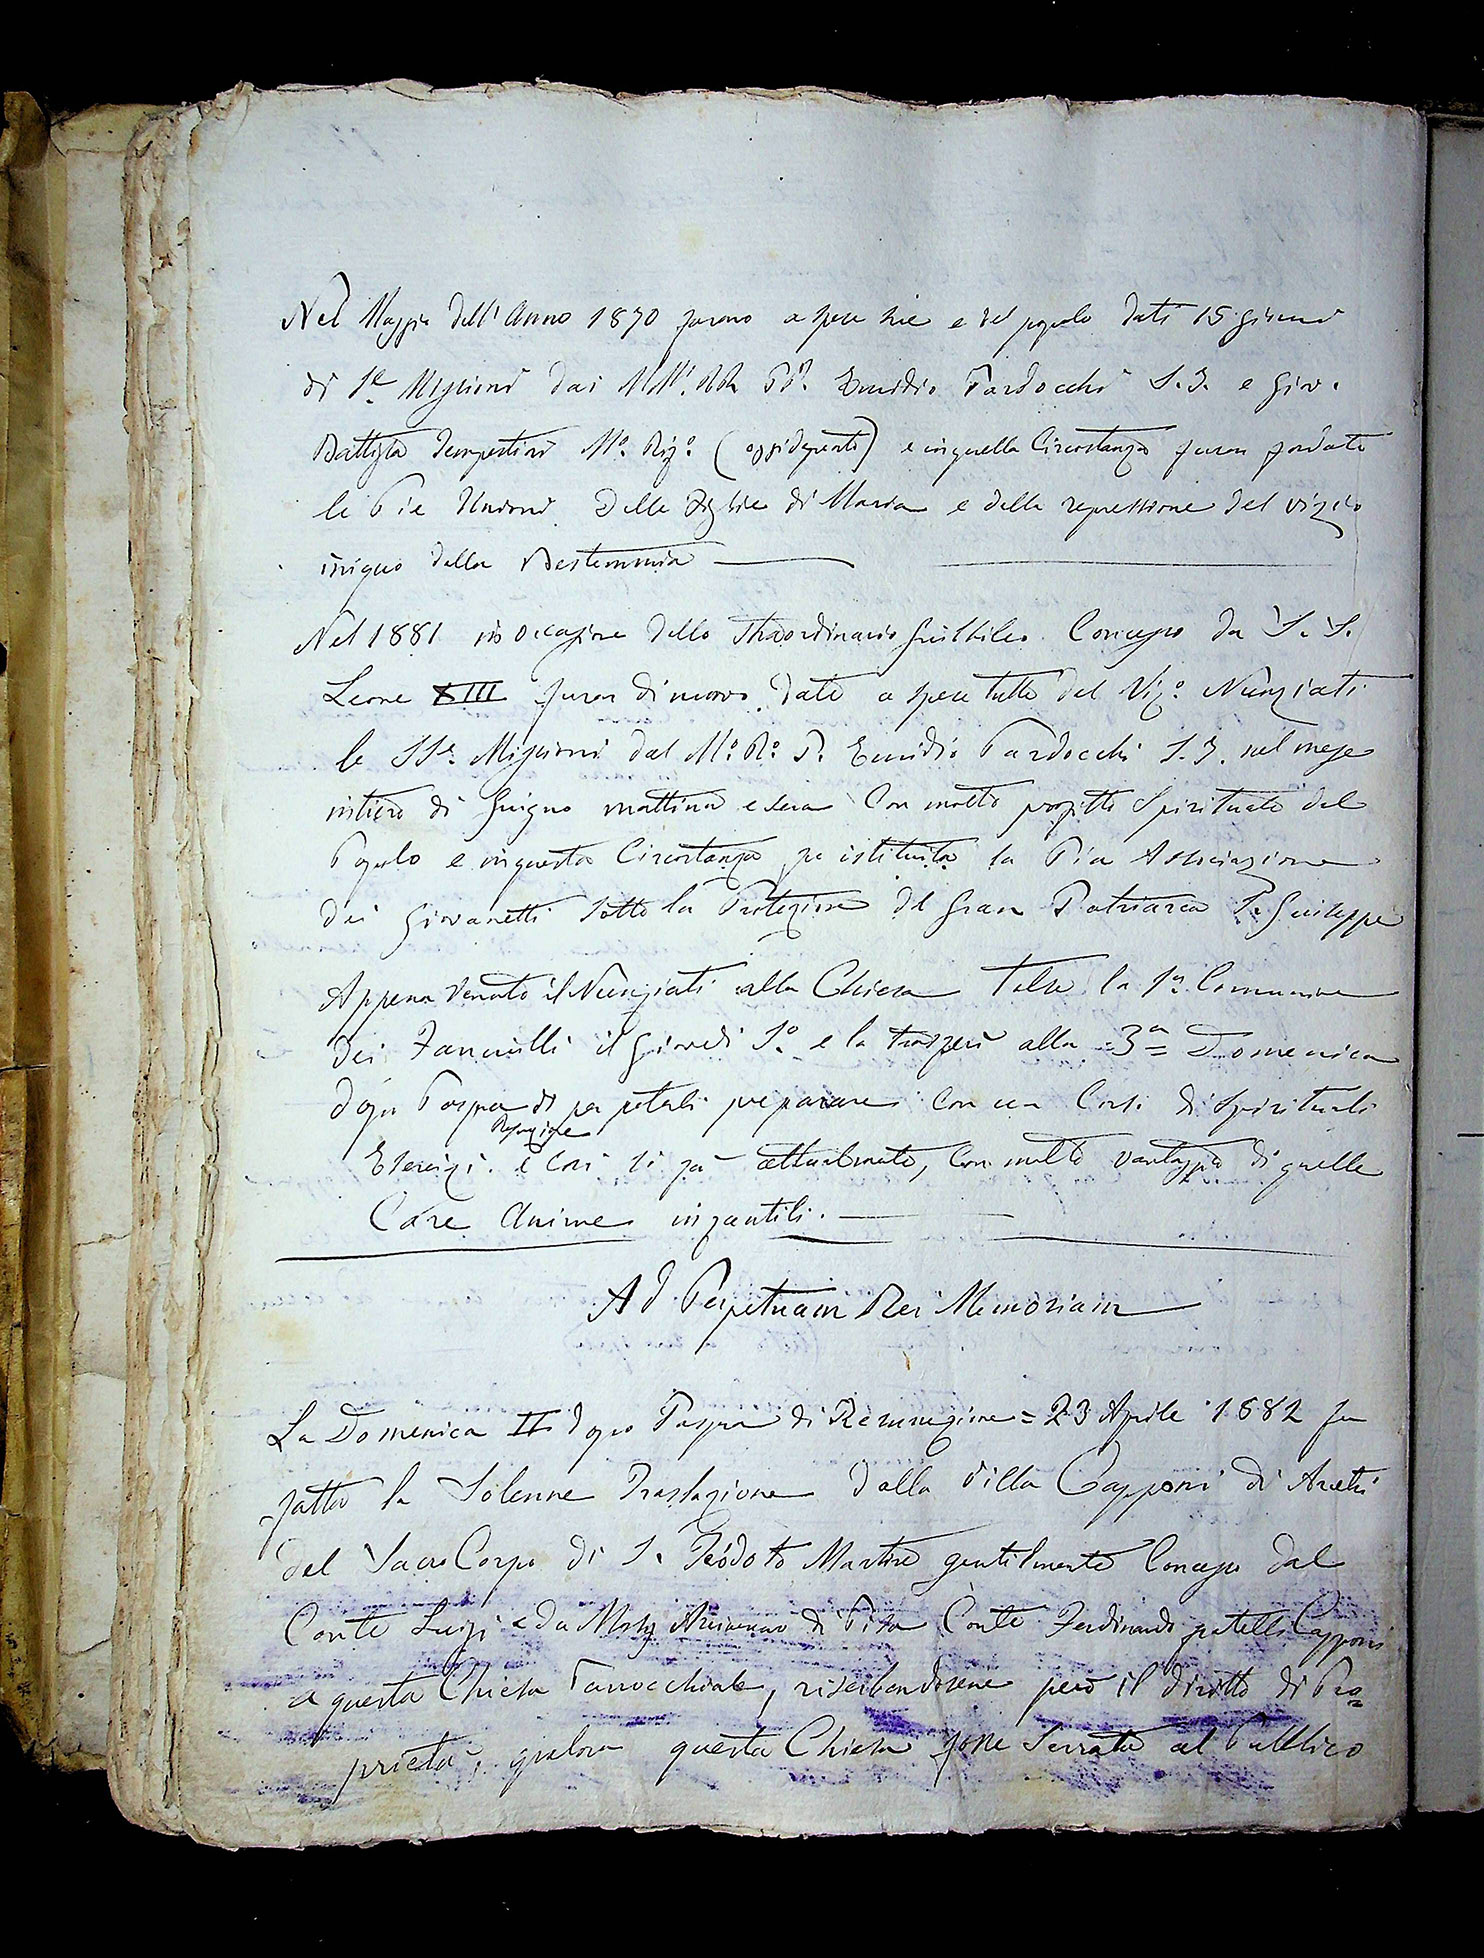 Nel Maggio dell'Anno 1870 furono a spese sue e del popolo dati 15 giorni
di Se Missioni dai MM. RR. PP. Emidio Pardocchi S.J. e Giov.
Battista Tempestini Mo. Rigo. e in quella Circostanza furon fondate
le Pie Unioni Delle Figlie di Maria e della repressione del vizio
iniquo della Bestemmia
Nel 1881 in occasione dello straordinario Giubbileo Concesso da S. S.
Leone XIII furon di nuovo date a spese tutte del Nunziati
le SSe. Missioni dal Mo. Ro. P. Emidio Pardocchi S.J. nel mese
intiero di Giugno mattina e sera Con molto profitto Spirituale del
Popolo e in questa Circostanza fu istituita la Pia Associazione
dei Giovanetti sotto la Protezione del Gran Patriarca S. Giuseppe
Appena Venuto il Nunziati alla Chiesa Tolse la 1a Comunione
dei Fanciulli il Giovedi So. e la trasferì alla =3a= Domenica
dopo Pasqua di per poterli preparare Con un Corso di Spirituali
Resurezione
Esercizi. e Così si fa attualmente, Con molto vantaggio di quelle
Care Anime infantili.
Ad Perpetuam Rei Memoriam
La Domenica II dopo Pasqua di Resurrezione = 23 Aprile 1882 fu
fatta la Solenne Traslazione dalla Villa Capponi di
del Sacro Corpo di S. Teódoto Martire gentilmente Concesso dal
Conte Luigi e da Monsg di Pisa Conte Ferdinando fratelli Capponi
a questa Chiesa Parrocchiale, riserbandosene però il diritto di Pro=
prietà, qualora questa Chiesa fosse Serrata al Pubblico